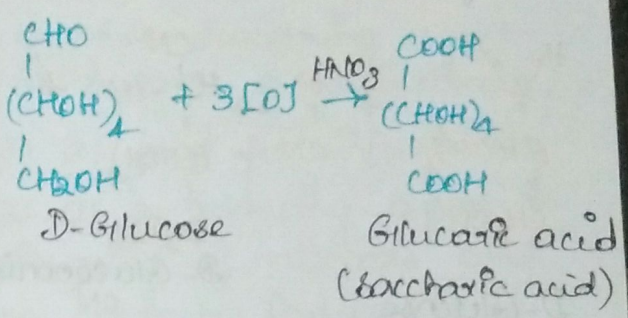 CHO
|
(CHOH)4 + 3[O] HNO3 →
|
CH2OH
D-Glucose
COOH
|
(CHOH)4
|
COOH
Glucaric acid
(saccharic acid)